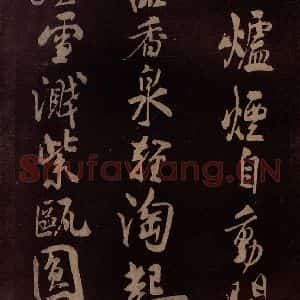 爐煙自動
香泉輕淘起
雪濺紫甌圓
Shufawang.CN